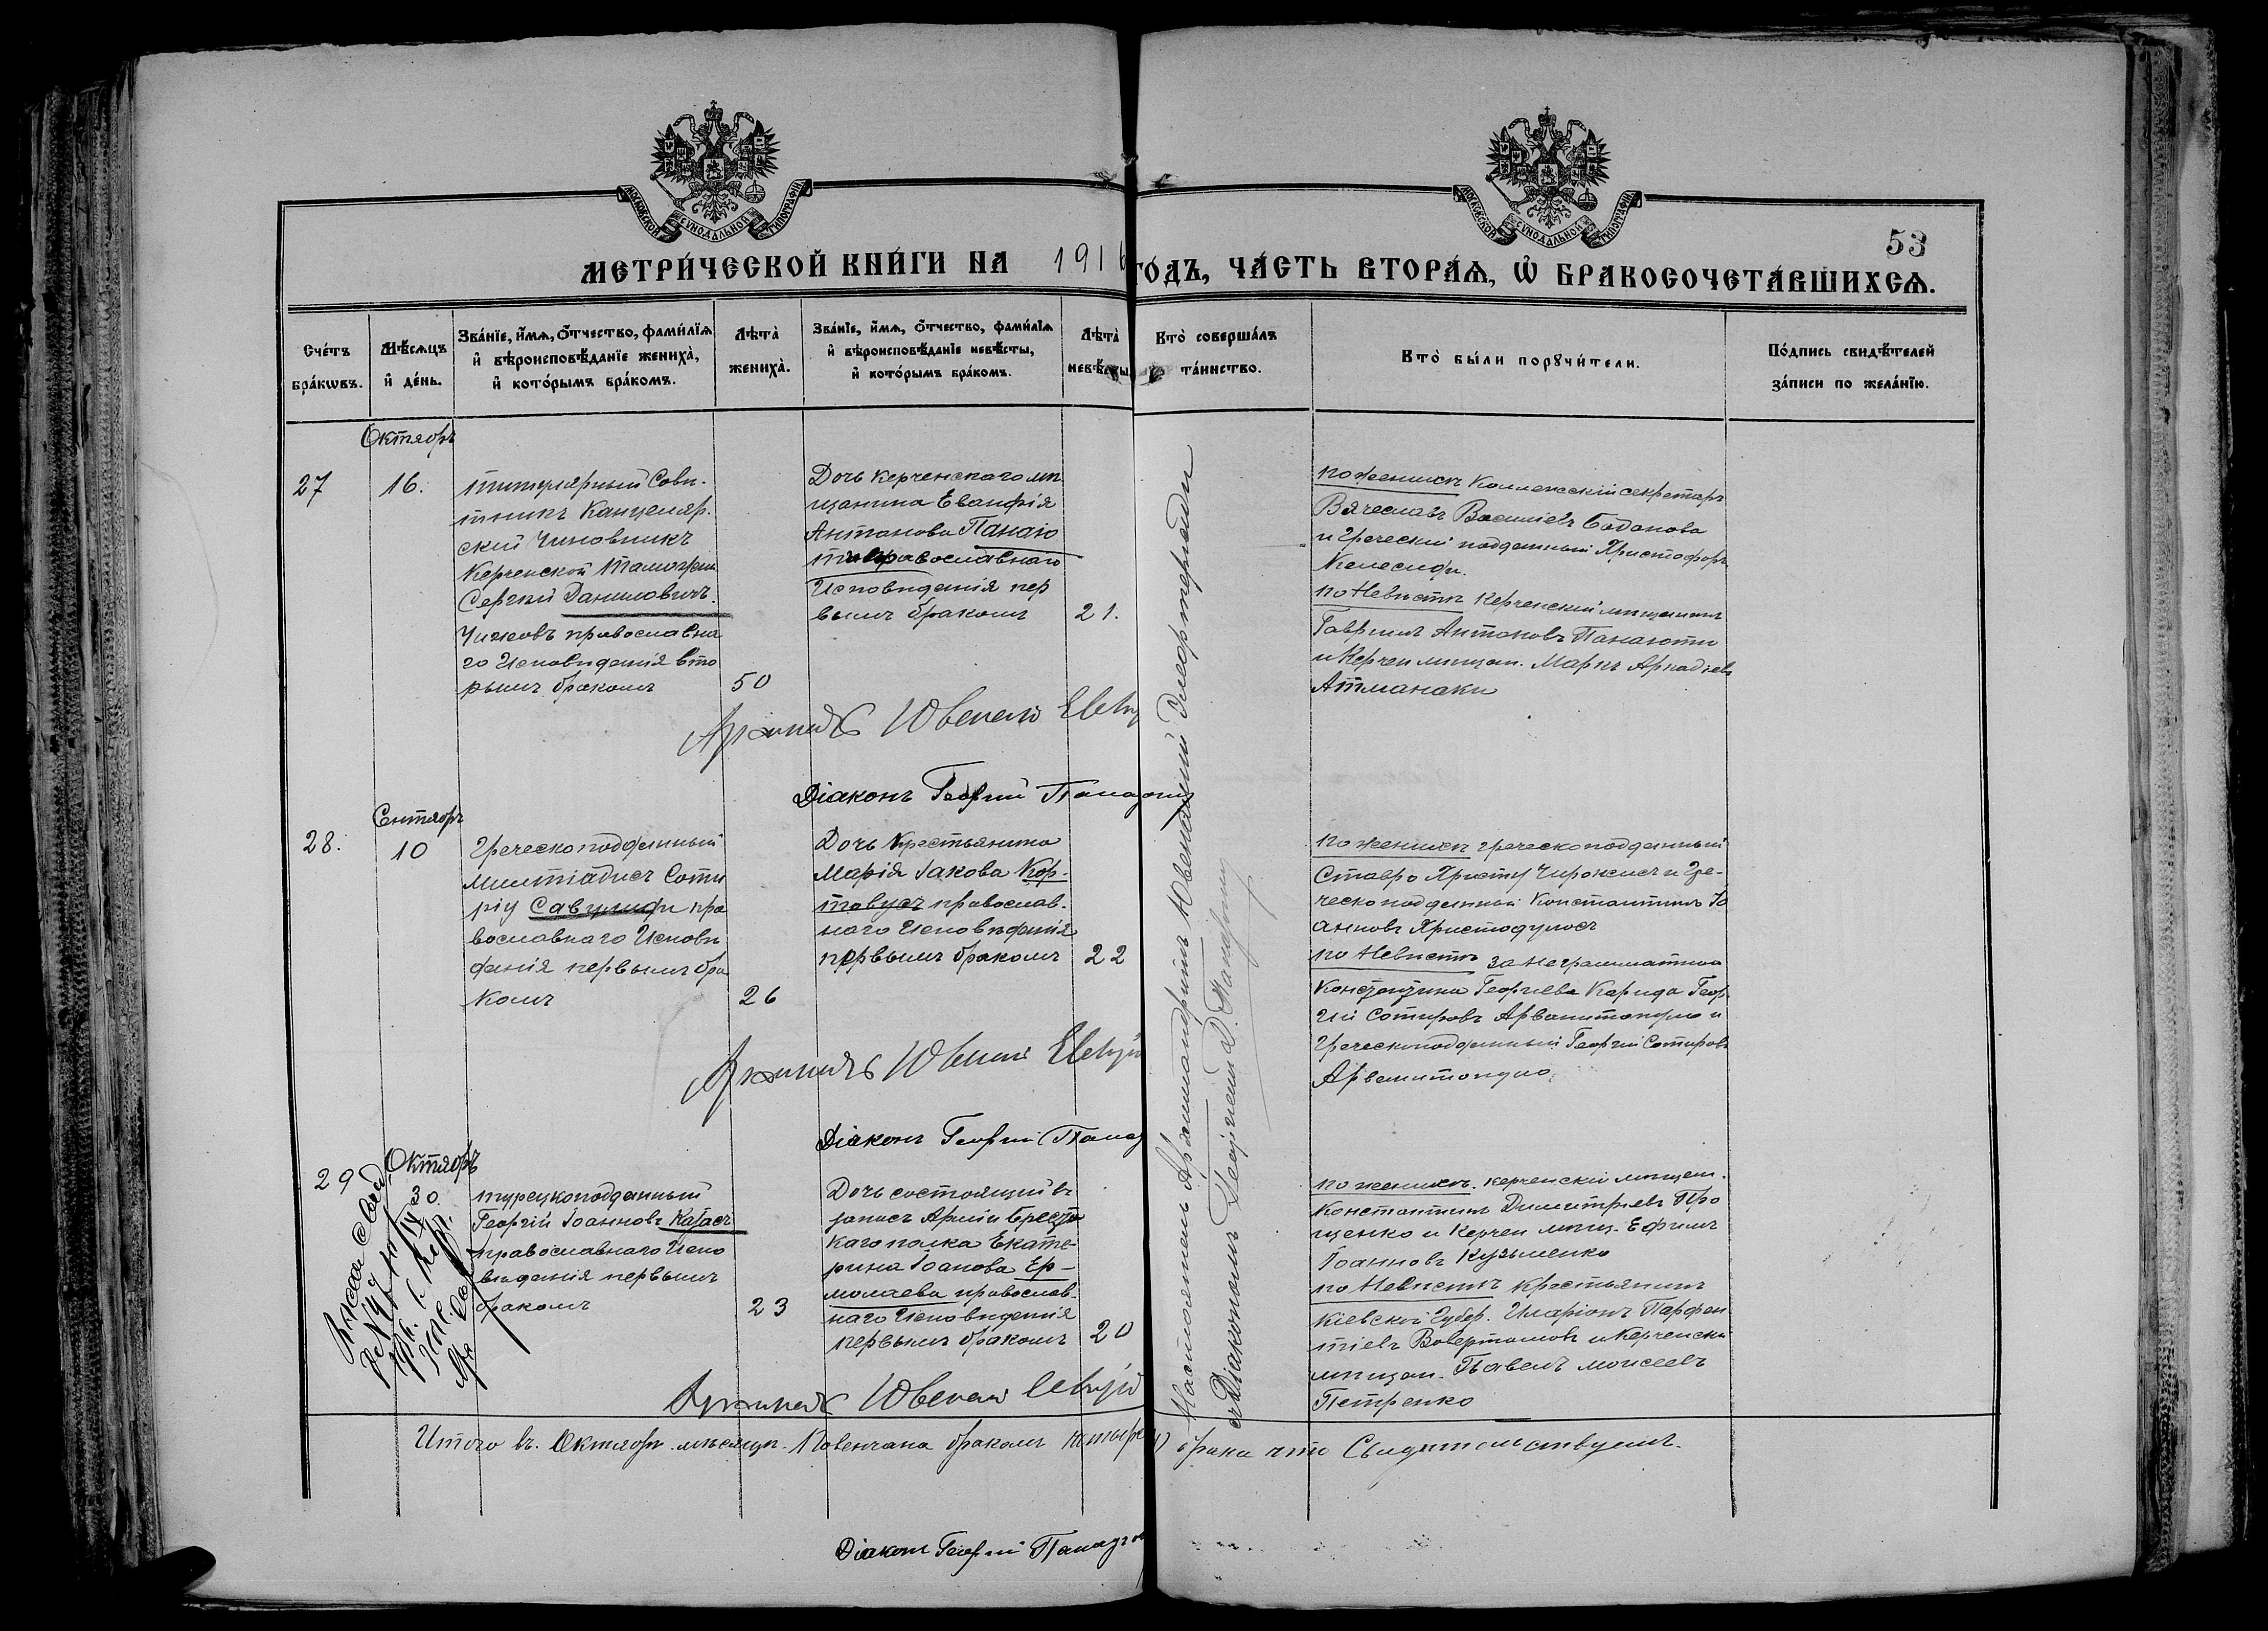 МОСКОВСКОЙ СУНОДАЛЬНОЙ ТИПОГРАФІИ
МОСКОВСКОЙ СУНОДАЛЬНОЙ ТИПОГРАФІИ
53
МЕТРИ́ЧЕСКОЙ КНИ́ГИ НА 1916 ГО́ДЪ, ЧА́СТЬ ВТОРА́Ѧ, Ѽ БРАКОСОЧЕТА́ВШИХСѦ.
Сче́тъ
бра́кѡвъ.
Мѣ́сѧцъ
и҆ де́нь.
Зва́нїе, и҆́мѧ, ѻ҆́тчество, фами́лїѧ
и҆ вѣроисповѣ́данїе жениха̀,
и҆ кото́рымъ бра́комъ.
Лѣ́та
жениха̀.
Зва́нїе, и҆́мѧ, ѻ҆́тчество, фами́лїѧ
и҆ вѣроисповѣ́данїе невѣ́сты,
и҆ кото́рымъ бра́комъ.
Лѣ́та
невѣ́сты
Кто̀ соверша́лъ
та́инство.
Кто̀ бы́ли порꙋчи́тели.
По́дпись свидѣ́телей
за́писи по жела́нїю.
Октябрь
27
16.
титулярный Совѣ-
тникъ Канцеляр.
скій Чиновникъ
Керченской Таможни
Сергѣй Даниловичъ.
Чижовъ православна
го Исповѣданія вто
рымъ бракомъ
50
Дочь Керченскаго мѣ
щанина Еванфія
Антонова Панаіо
ти православнаго
Исповѣданія пер
вымъ бракомъ
21.
по женихѣ Коллежскій секретарь
Вячеславъ Василіевъ
и Греческій подданный Христофоръ
Келесиди.
по Невѣстѣ Керченскій мѣщанинъ
Гавріилъ Антоновъ Панаіоти
и Керчен мѣщан. Маркъ Аркадіевъ
Атманаки
Архиман Ювенал
Діаконъ Георгій Пападоп
Сентябрь
28.
10
Греческоподданный
Милтіадисъ Соти
ріу Савулиди пра
вославнаго Исповѣ
данія первымъ бра
комъ
26
Дочь Крестьянина
Марія Іакова Кор-
товусъ православ.
наго Исповѣданія
первымъ бракомъ
22
по женихѣ греческоподданный
Ставро Христу Чирожисъ и Гре-
ческоподданный Константинъ Іо
анновъ Христодулосъ
по Невѣстѣ за неграматнаго
Константина Георгіева Карида Геор-
гій Сотировъ Арванитопуло и
Греческоподданный Георгій Сотировъ
Арванитопуло.
Архиман Ювенал
Діаконъ Георгій Папад
29
Октябрь
30
турецкоподданный
Георгій Іоанновъ Катасъ
православнаго Испо
вѣданія первымъ
бракомъ
23
Дочь состоящій въ
запасъ Арміи Брест
каго полка Екате-
рина Іоанова Ер-
молаева православ-
наго Исповѣданія
первымъ бракомъ
20
по женихѣ. керченскій мѣщан.
Константинъ Димитріевъ Про
щенко и Керчен мѣщ. Ефимъ
Іоанновъ Кузьменко
по Невѣстѣ крестьянинъ
Кіевской Губер. Иларіонъ Парфен
тіевъ и Керченскі
мѣщан. Павелъ моисеевъ
Петренко
Архиман Ювенал
Настоятель Архимандритъ Ювеналій Элефтеріади
съ Діакономъ Георгіемъ Д.
Итого въ. Октябрь мѣсяцъ. Повенчана бракомъ четыре
брака что Свидѣтельствуемъ.
Діаконъ Георгій Пападоп